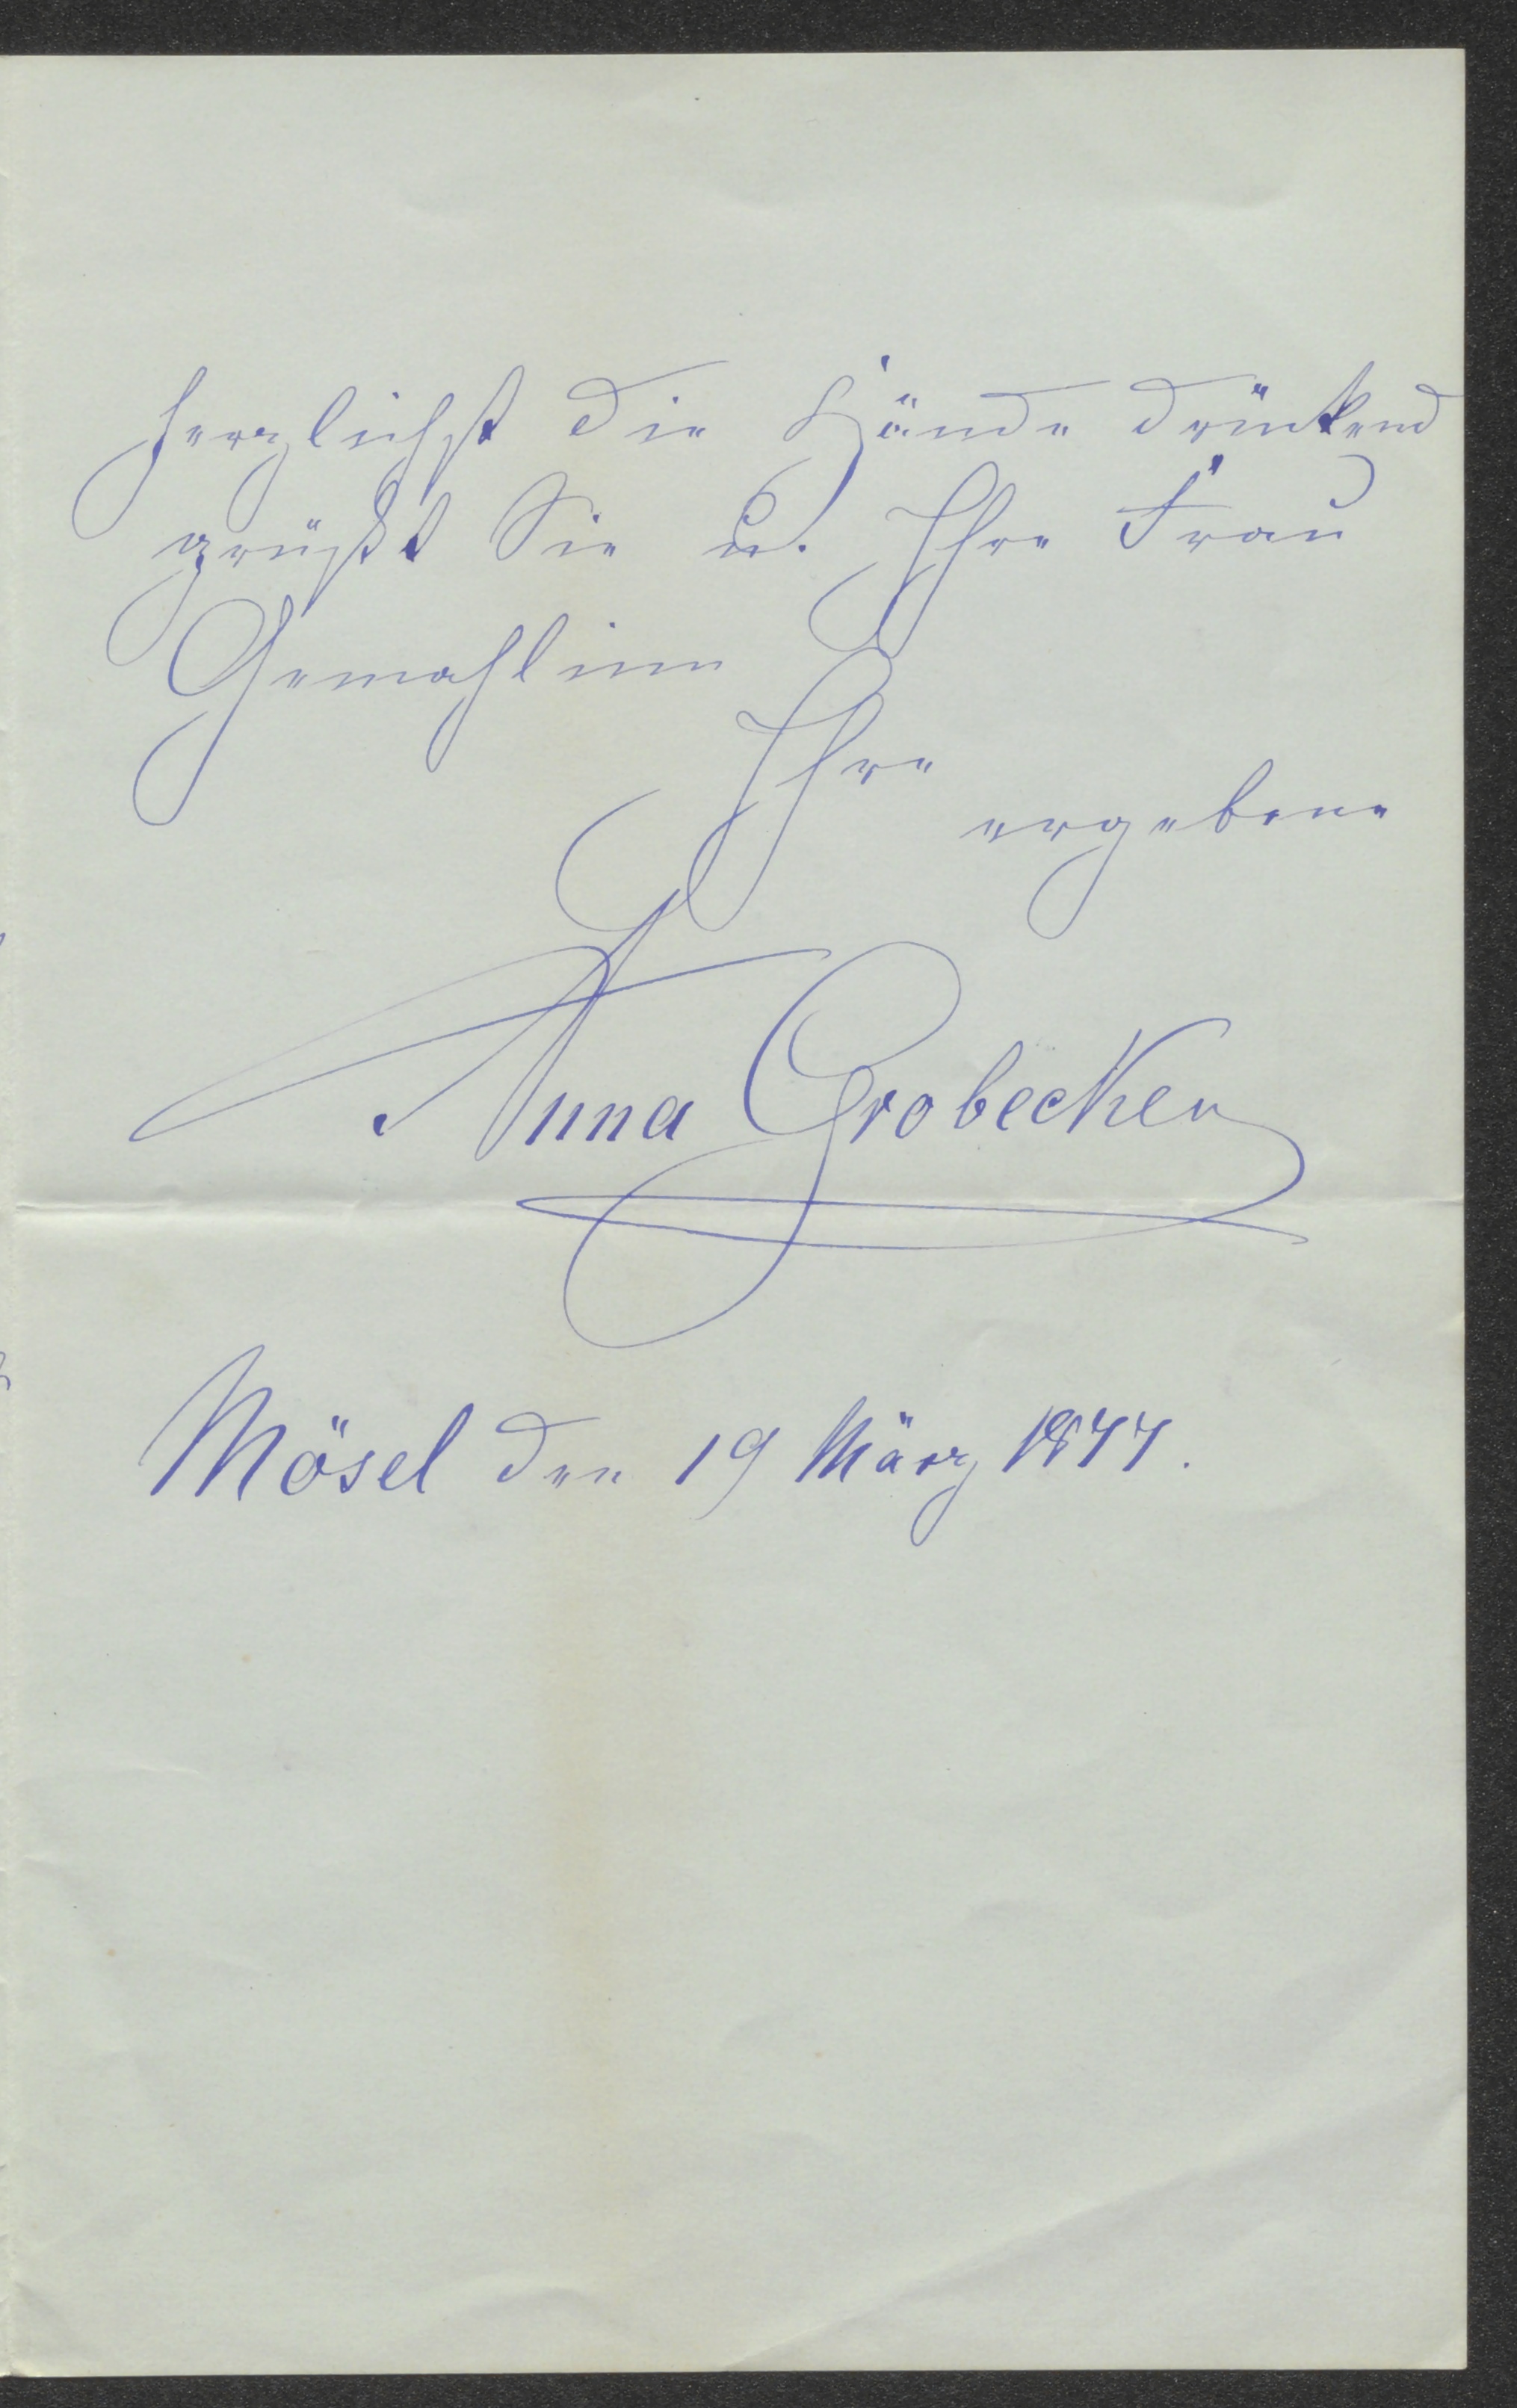 herzlichst die Hände drückend
grüßt Sie u. Ihre Frau
Gemahlinn
Ihre
ergebene
Anna Grobecker
Mösel den 19 März 1877.